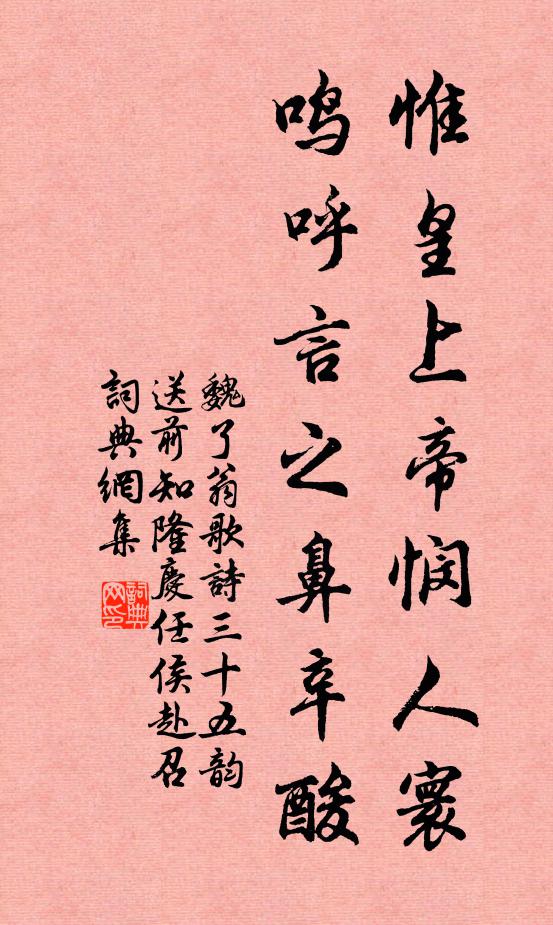 惟皇上帝悯人寰
鸣呼言之鼻辛酸
魏了翁歌詩三十五韵
送前知隆慶任侯赴召
詞典網集
詞典网印